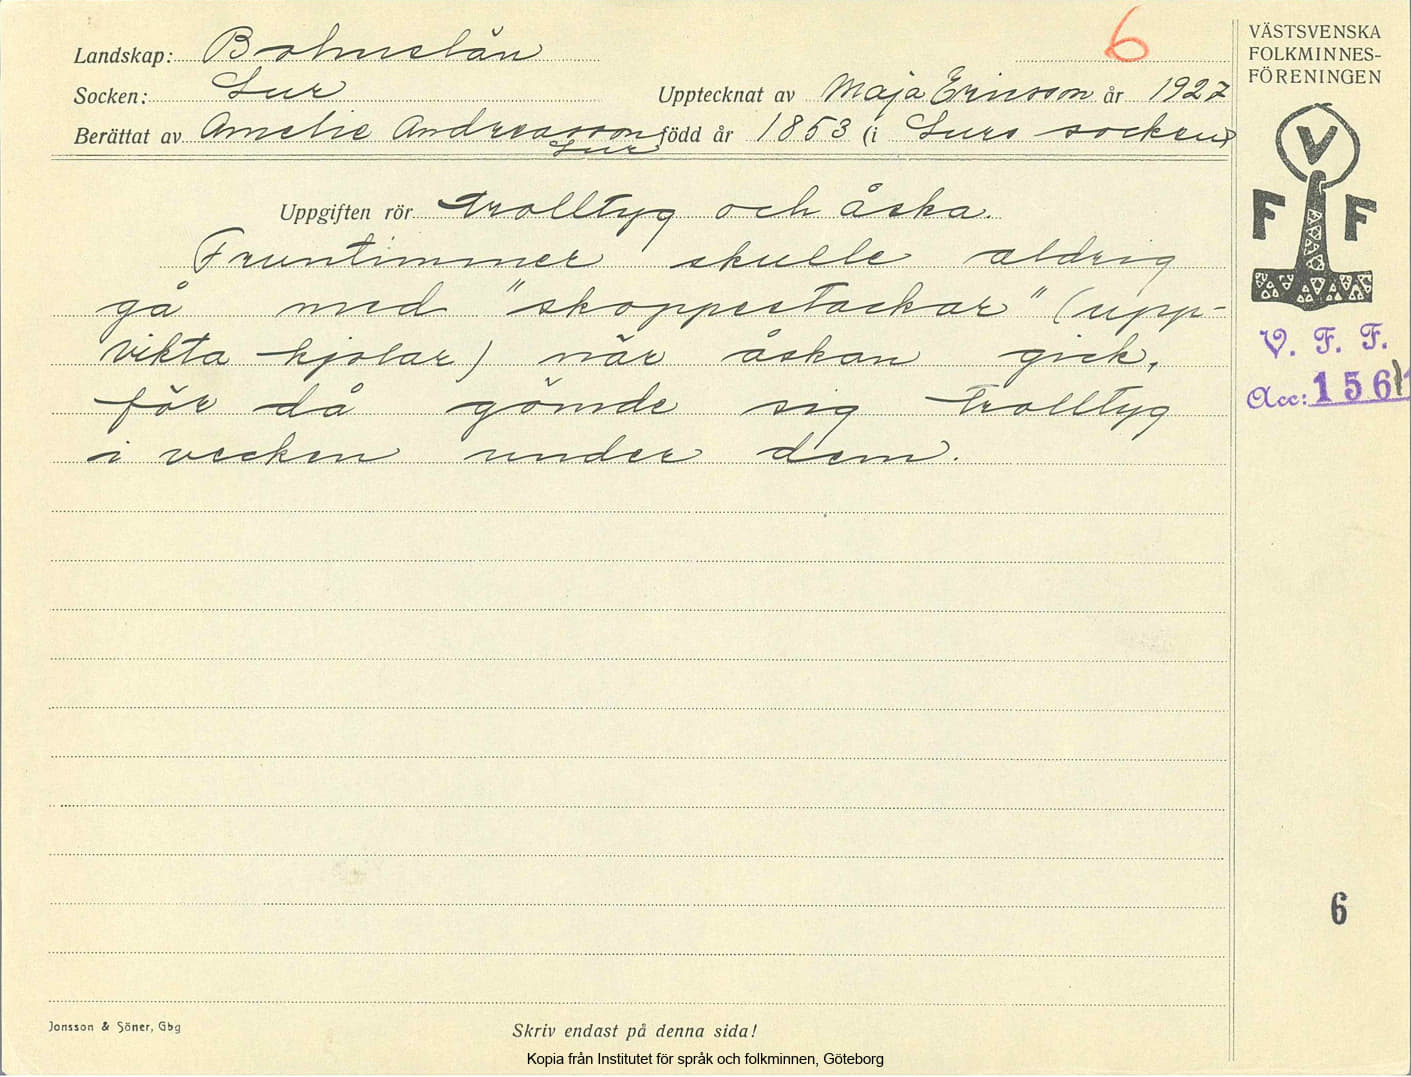 Landskap: Bohuslän
6
Socken: Lur
Upptecknat av Maja Ericsson år 1927
Berättat av Amelie Andreasson Lur född år 1853 (i Lurs socken)
Uppgiften rör trolltyg och åska.
Fruntimmer skulle aldrig
gå med "skoppestackar" (upp-
vikta kjolar) när åskan gick,
för då gömde sig trolltyg
i vecken under dem.
VÄSTSVENSKA
FOLKMINNES-
FÖRENINGEN
V
F F
V. F. F.
Acc: 1561
6
Jonsson & Söner, Gbg
Skriv endast på denna sida!
Kopia från Institutet för språk och folkminnen, Göteborg